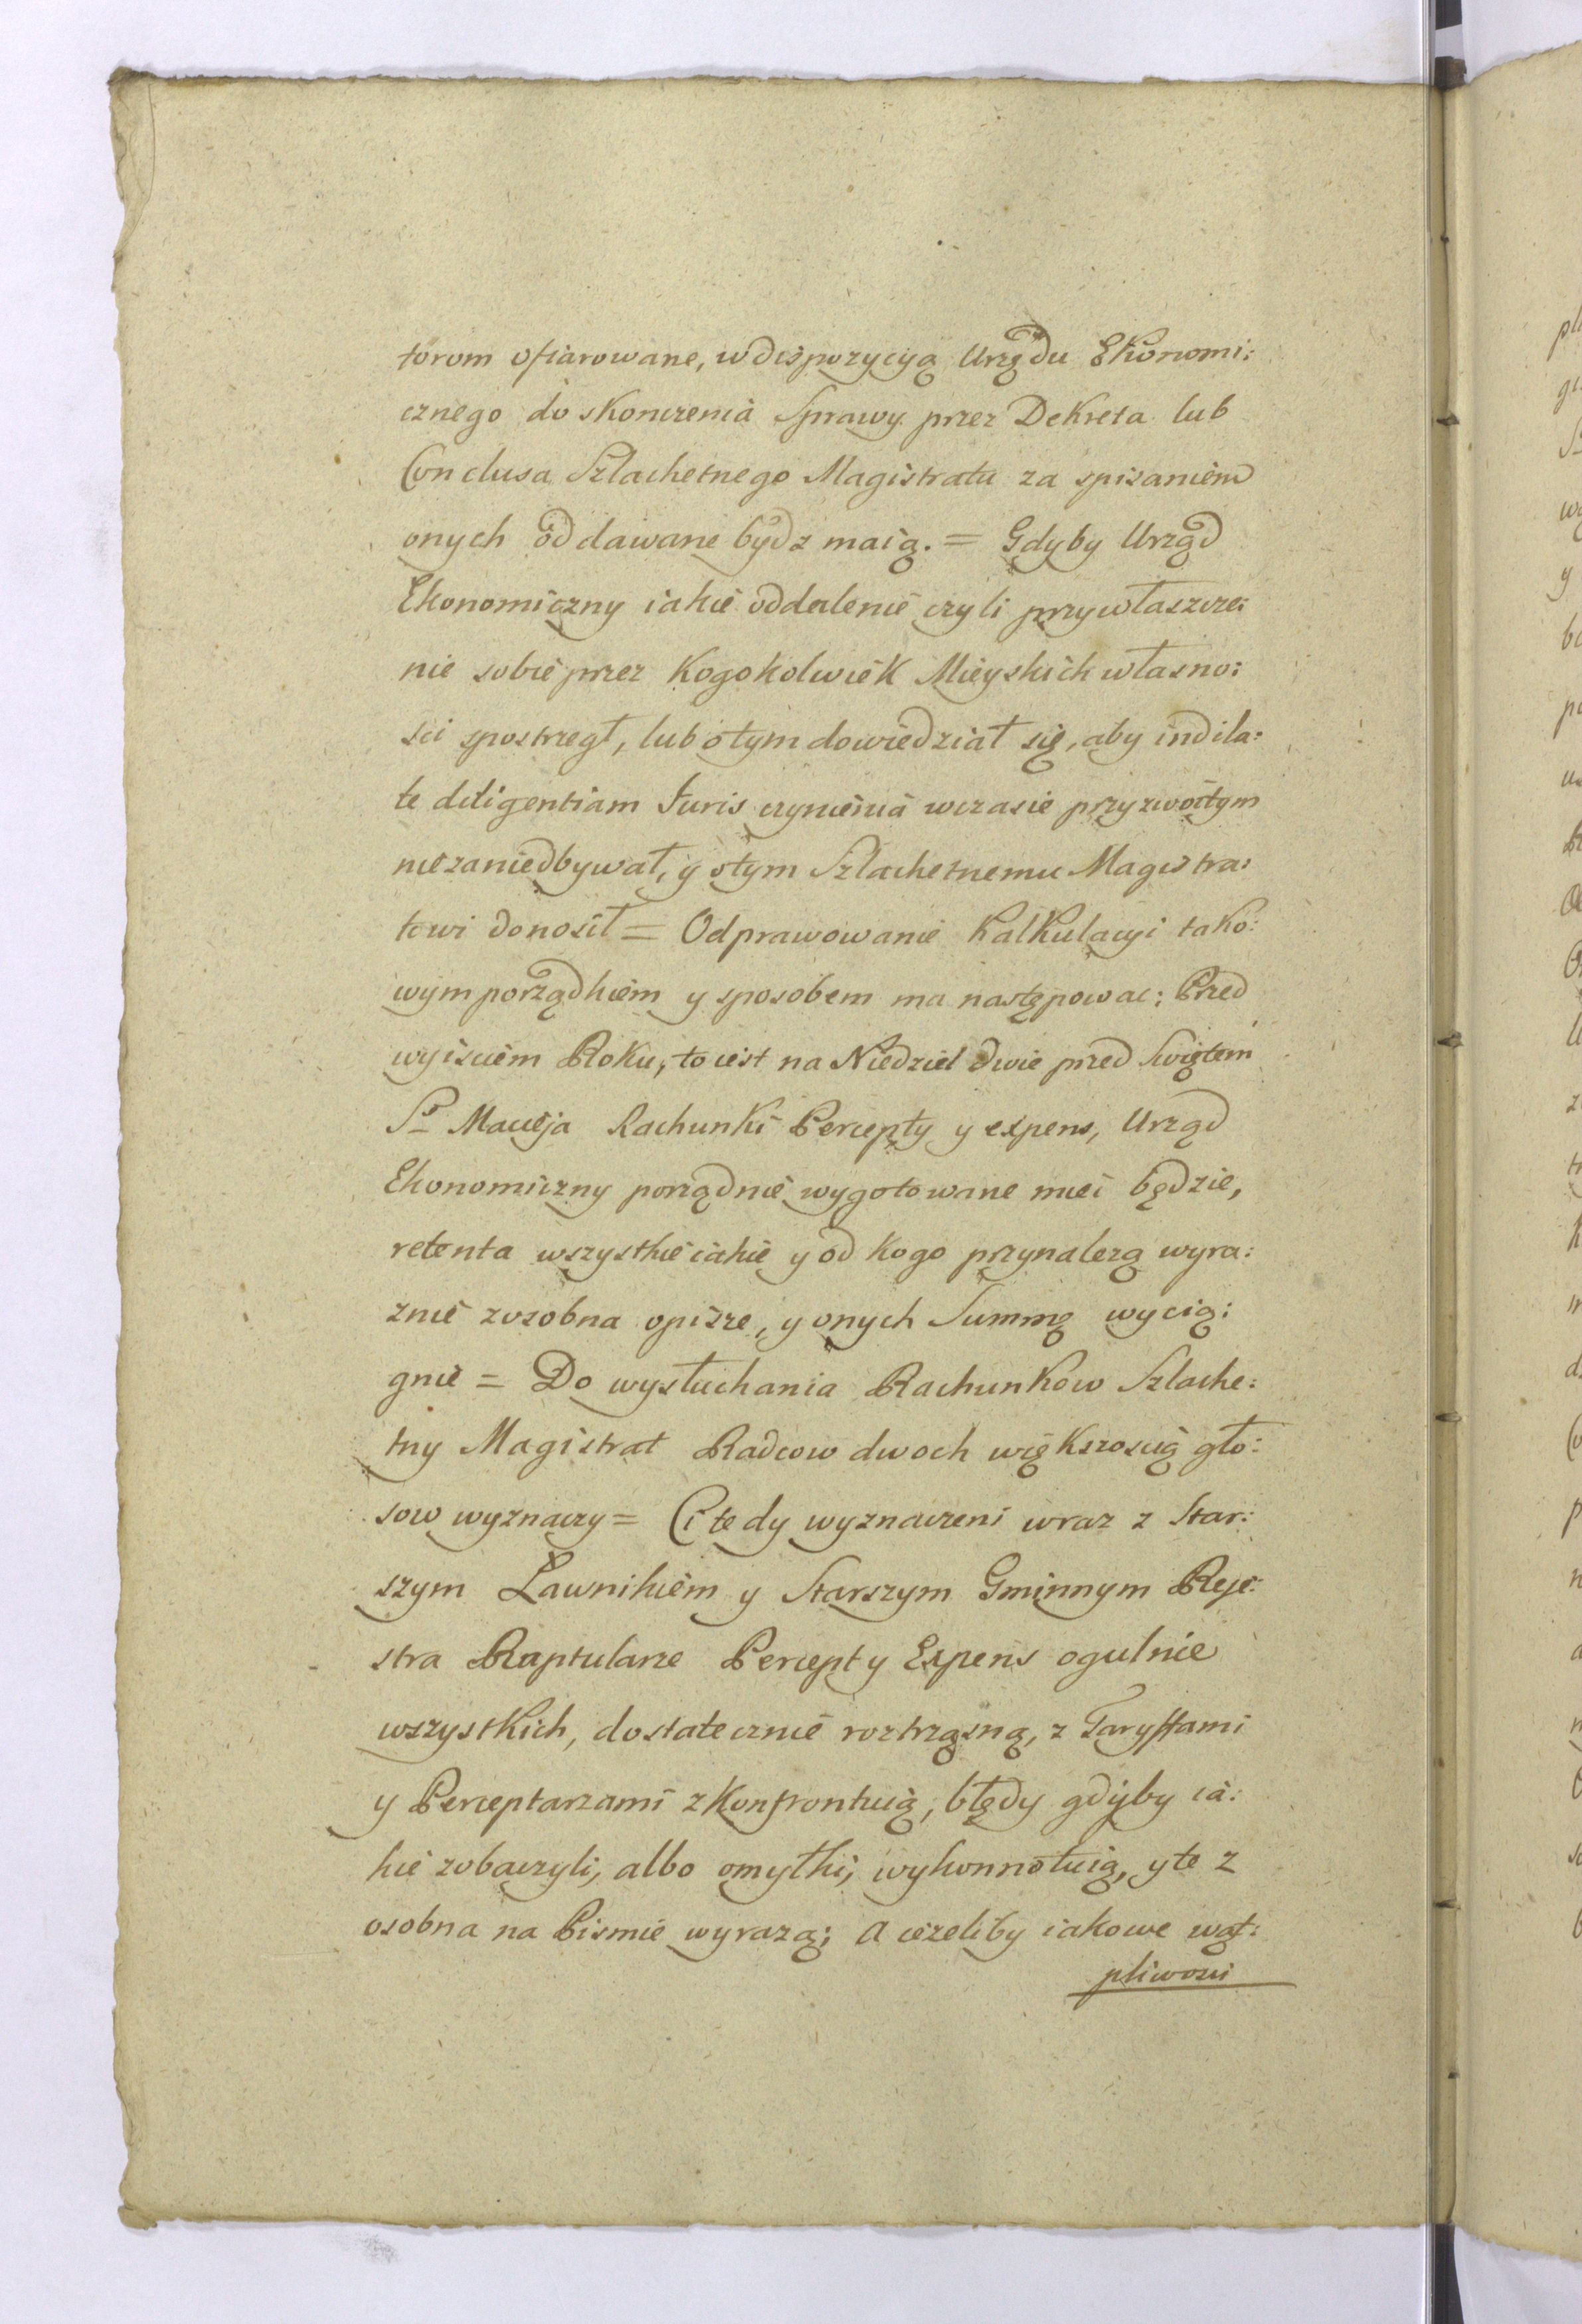 torom ofiarowane, w dispozycyą Urzędu Ekonomi:
cznego do skonczenia Sprawy przez Dekreta lub
Conclusa Szlachetnego Magistratu za spisaniem
onych oddawane bydz maią. = Gdyby Urząd
Ekonomiczny iakie oddalenie czyli przywłaszcze:
nie sobie przez Kogokolwiek Mieyskich własno:
sci spostrzegł, lub o tym dowiedział się, aby indila:
te diligentiam Juris czynienia w czasie przyzwoitym
niezaniedbywał, y o tym Szlachetnemu Magistra:
towi donosił = Odprawowanie Kalkulacyi tako:
wym porządkiem y sposobem ma następowac; Przed
wyisciem Roku, to iest na Niedziel dwie przed Swiętem
So Macieja Rachunki Percepty y expens, Urząd
Ekonomiczny porządnie wygotowane miei będzie,
retenta wszystkie iakie y od kogo przynalezą wyra:
znie zosobna opisze, y onych Summę wycią:
gnie = Do wysłuchania Rachunkow Szlache:
tny Magistrat Radcow dwoch większoscią gło:
sow wyznaczy = Ci tedy wyznaczeni wraz z Star:
szym Ławnikiem y Starszym Gminnym Reje:
stra Raptularze Percept y Expens ogulnie
wszystkich, dostatecznie roztrząsną, z Taryffami
y Perceptarzami zkonfrontuią, błędy gdyby ia:
kie zobaczyli, albo omyłki, wykonnotuią, y te z
osobna na Pismie wyrazą; A iezeliby iakowe wąt:
pliwosci